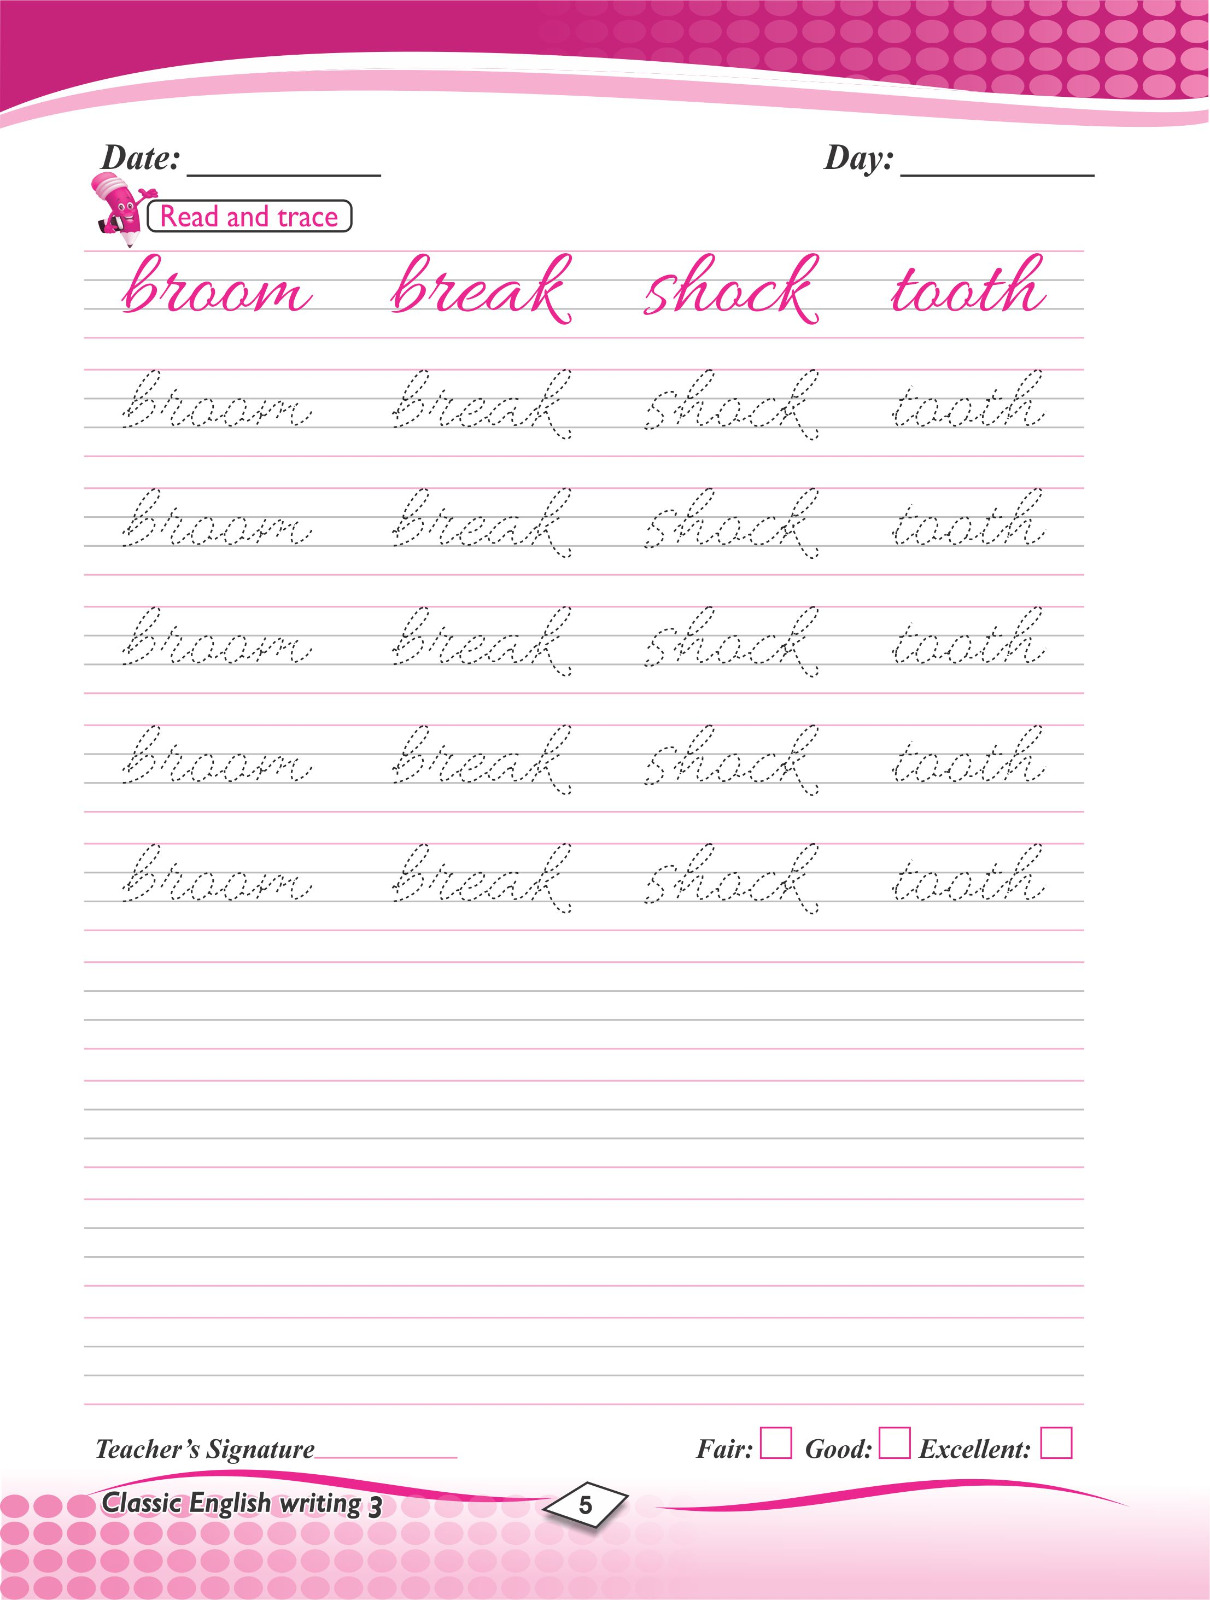 Date: ___________ Day: ___________
Read and trace
broom break shock tooth
broom break shock tooth
broom break shock tooth
broom break shock tooth
broom break shock tooth
broom break shock tooth
Teacher's Signature__________ Fair: Good: Excellent:
Classic English writing 3 5